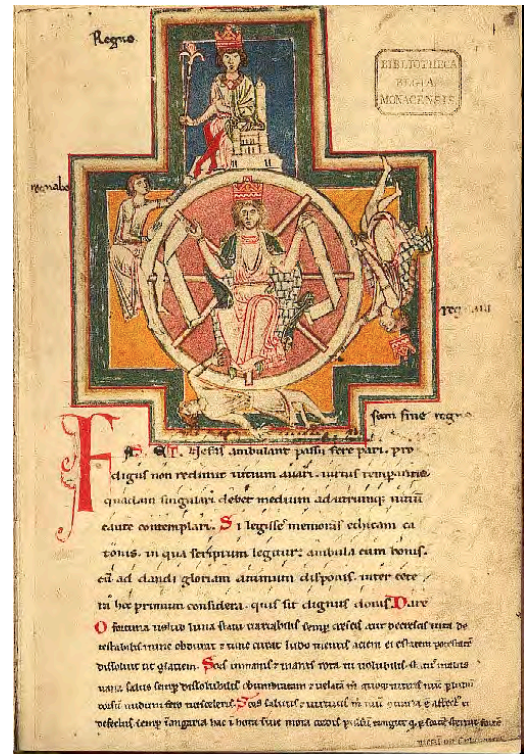 Regno
BIBLIOTHECA
REGIA
MONACENSIS
regnabo
regnaui
sum sine regno
F
AS ET Nefas ambulant passu fere pari. pro
digus non redimit uitium auari. uirtus temperantia
quadam singulari. debet medium ad utrumq; uitiū
caute contemplari. Si legisse memoras ethicam ca
tonis. in qua scriptum legitur: ambula cum bonis.
cū ad dandi gloriam animum disponis. inter cete
ra hoc primum considera. quis sit dignus donis. Dare
O fortuna uelud luna statu uariabilis semp crescis aut decrescis uita de
testabilis nunc obdurat & tunc curat ludo mentis aciem egestatem potestatē
dissoluit ut glaciem. Sors inmanis & inanis rota tu uolubilis status malus
uana salus semp dissolubilis obumbratam & uelatā m quoq niteris nūc p ludū
dorsū nudum fero tui sceleris. Sors salutis & uirtutis m nūc
defectus semp in angaria hac in hora sine mora